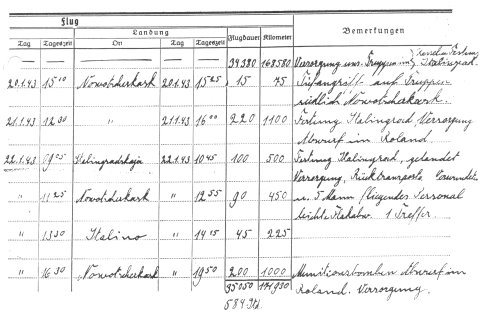 Flug
Landung Flugdauer Kilometer Bemerkungen
Tag Tageszeit Ort Tag Tageszeit
39380 168580 Versorgung uns. Truppen
20.1.43 15 10 Nowotscherkask 20.1.43 15 25 15 75 Tiefangriff auf Truppen
Nowotscherkask.
21.1.43 12 30 " 21.1.43 16 00 220 1100 Festung Stalingrad Versorgung
Abwurf im Roland
22.1.43 09 05 Stalingradskaja 22.1.43 10 45 100 500 Festung Stalingrad, gelandet
Versorgung, Rücktransport
" 11 25 Nowotscherkask " 12 55 90 450 u. 5 Mann fliegendes Personal
leichte Flakabw. 1 Treffer.
" 13 30 Stalino " 14 15 45 225
" 16 30 Nowotscherkask " 19 50 200 1000 Munitionsbomben Abwurf im
35050 171930 Roland. Versorgung.
584 Std.